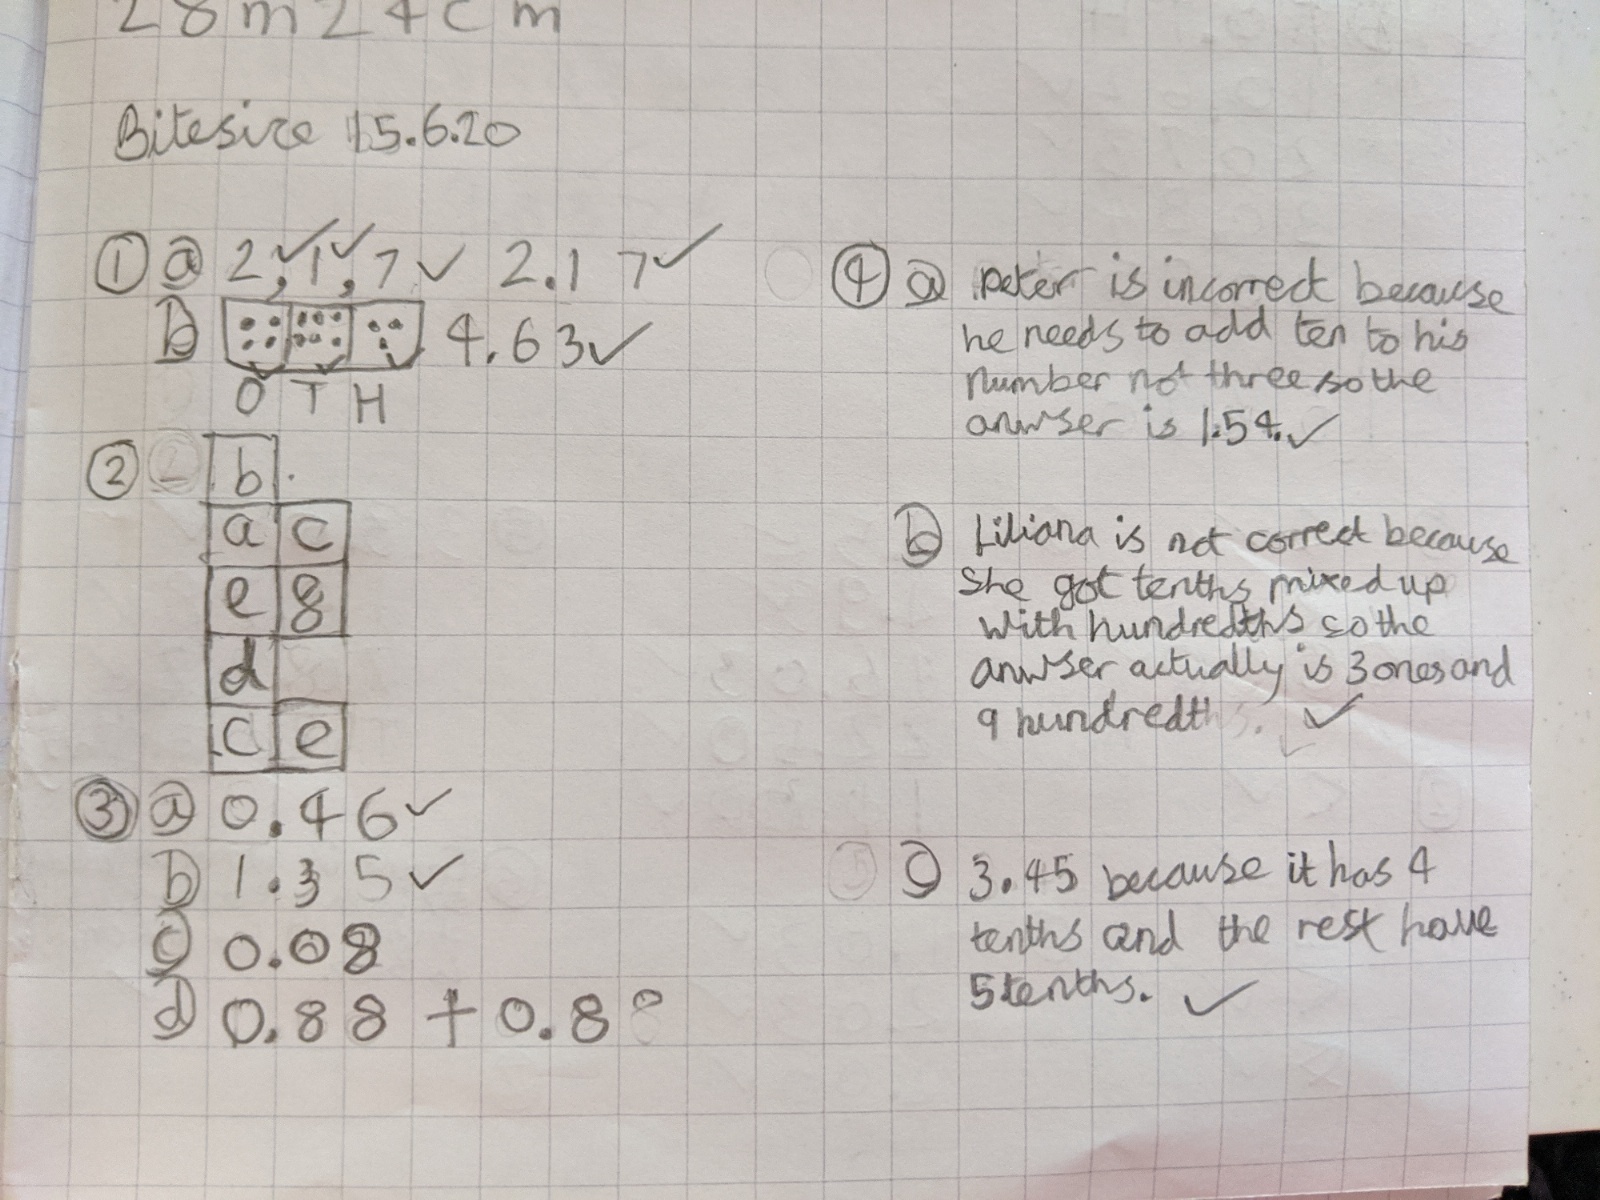 28m24cm
Bitesize 15.6.20
① ⓐ 2,1,7 2.17
ⓑ 4.63
O T H
②
b
a c
e 8
d
c e
③ ⓐ 0.46
ⓑ 1.35
ⓒ 0.08
ⓓ 0.88 + 0.8
④ ⓐ Peter is incorrect because
he needs to add ten to his
number not three so the
anwser is 1.54.
ⓑ Liliana is not correct because
She got tenths mixed up
with hundredths so the
anwser actually is 3 ones and
9 hundredths.
ⓒ 3.45 because it has 4
tenths and the rest have
5 tenths.